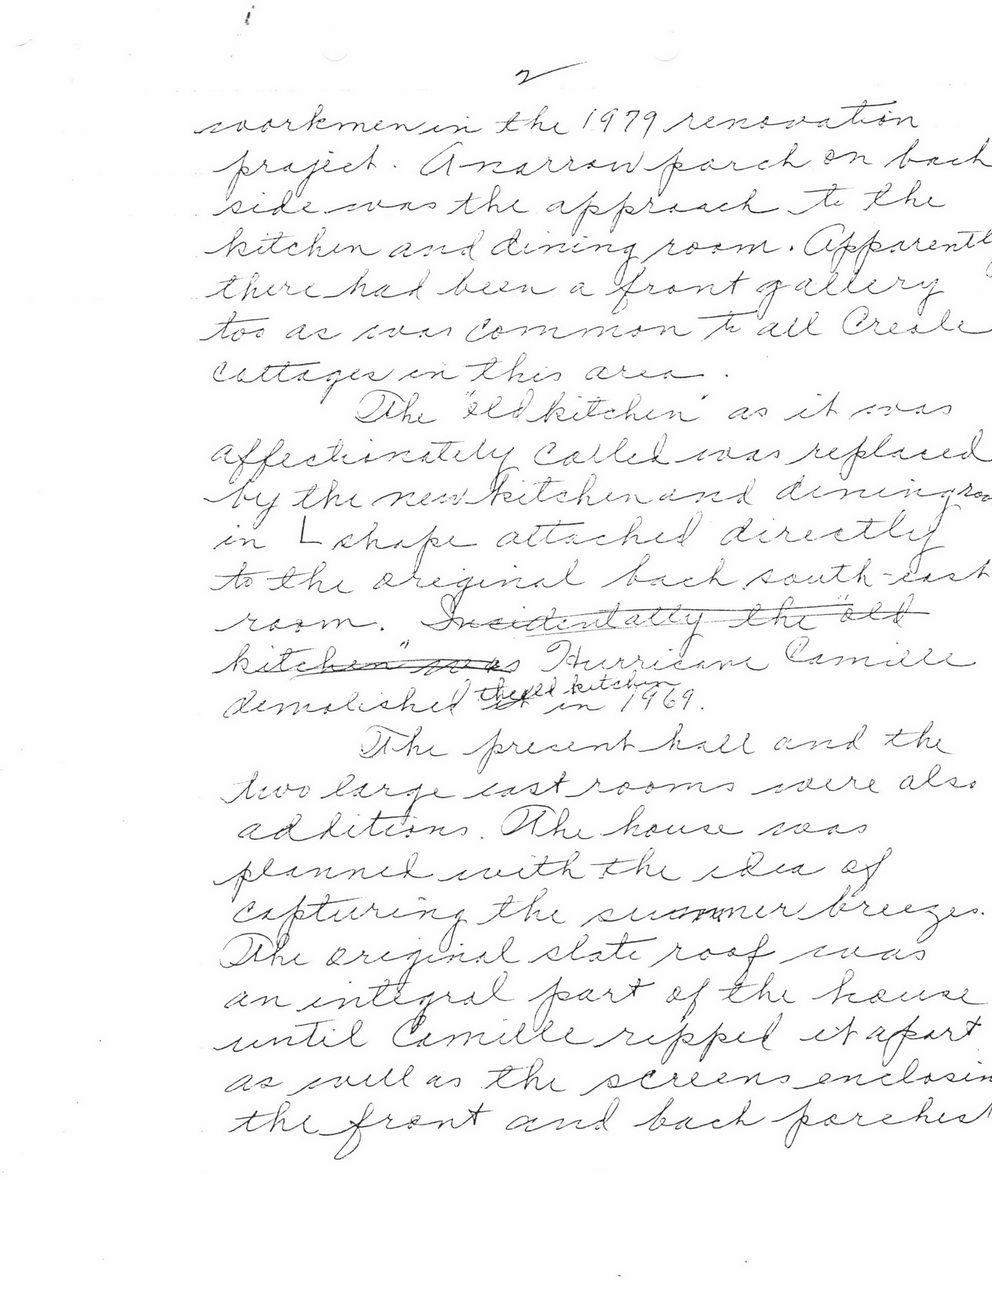 2
workmen in the 1979 renovation
project. A narrow porch on back
side was the approach to the
kitchen and dining room. Apparently
there had been a front gallery
too as was common to all Creole
cottages in this area.
The "old kitchen" as it was
affectionately called was replaced
by the new kitchen and dining roo
in L shape attached directly
to the original back south-east
room. Incidentally the "old
kitchen" was Hurricane Camille
the old kitchen
demolished it in 1969.
The present hall and the
two large east rooms were also
additions. The house was
planned with the idea of
capturing the summer breezes.
The original slate roof was
an integral part of the house
until Camille ripped it apart
as well as the screens enclosin
the front and back porches